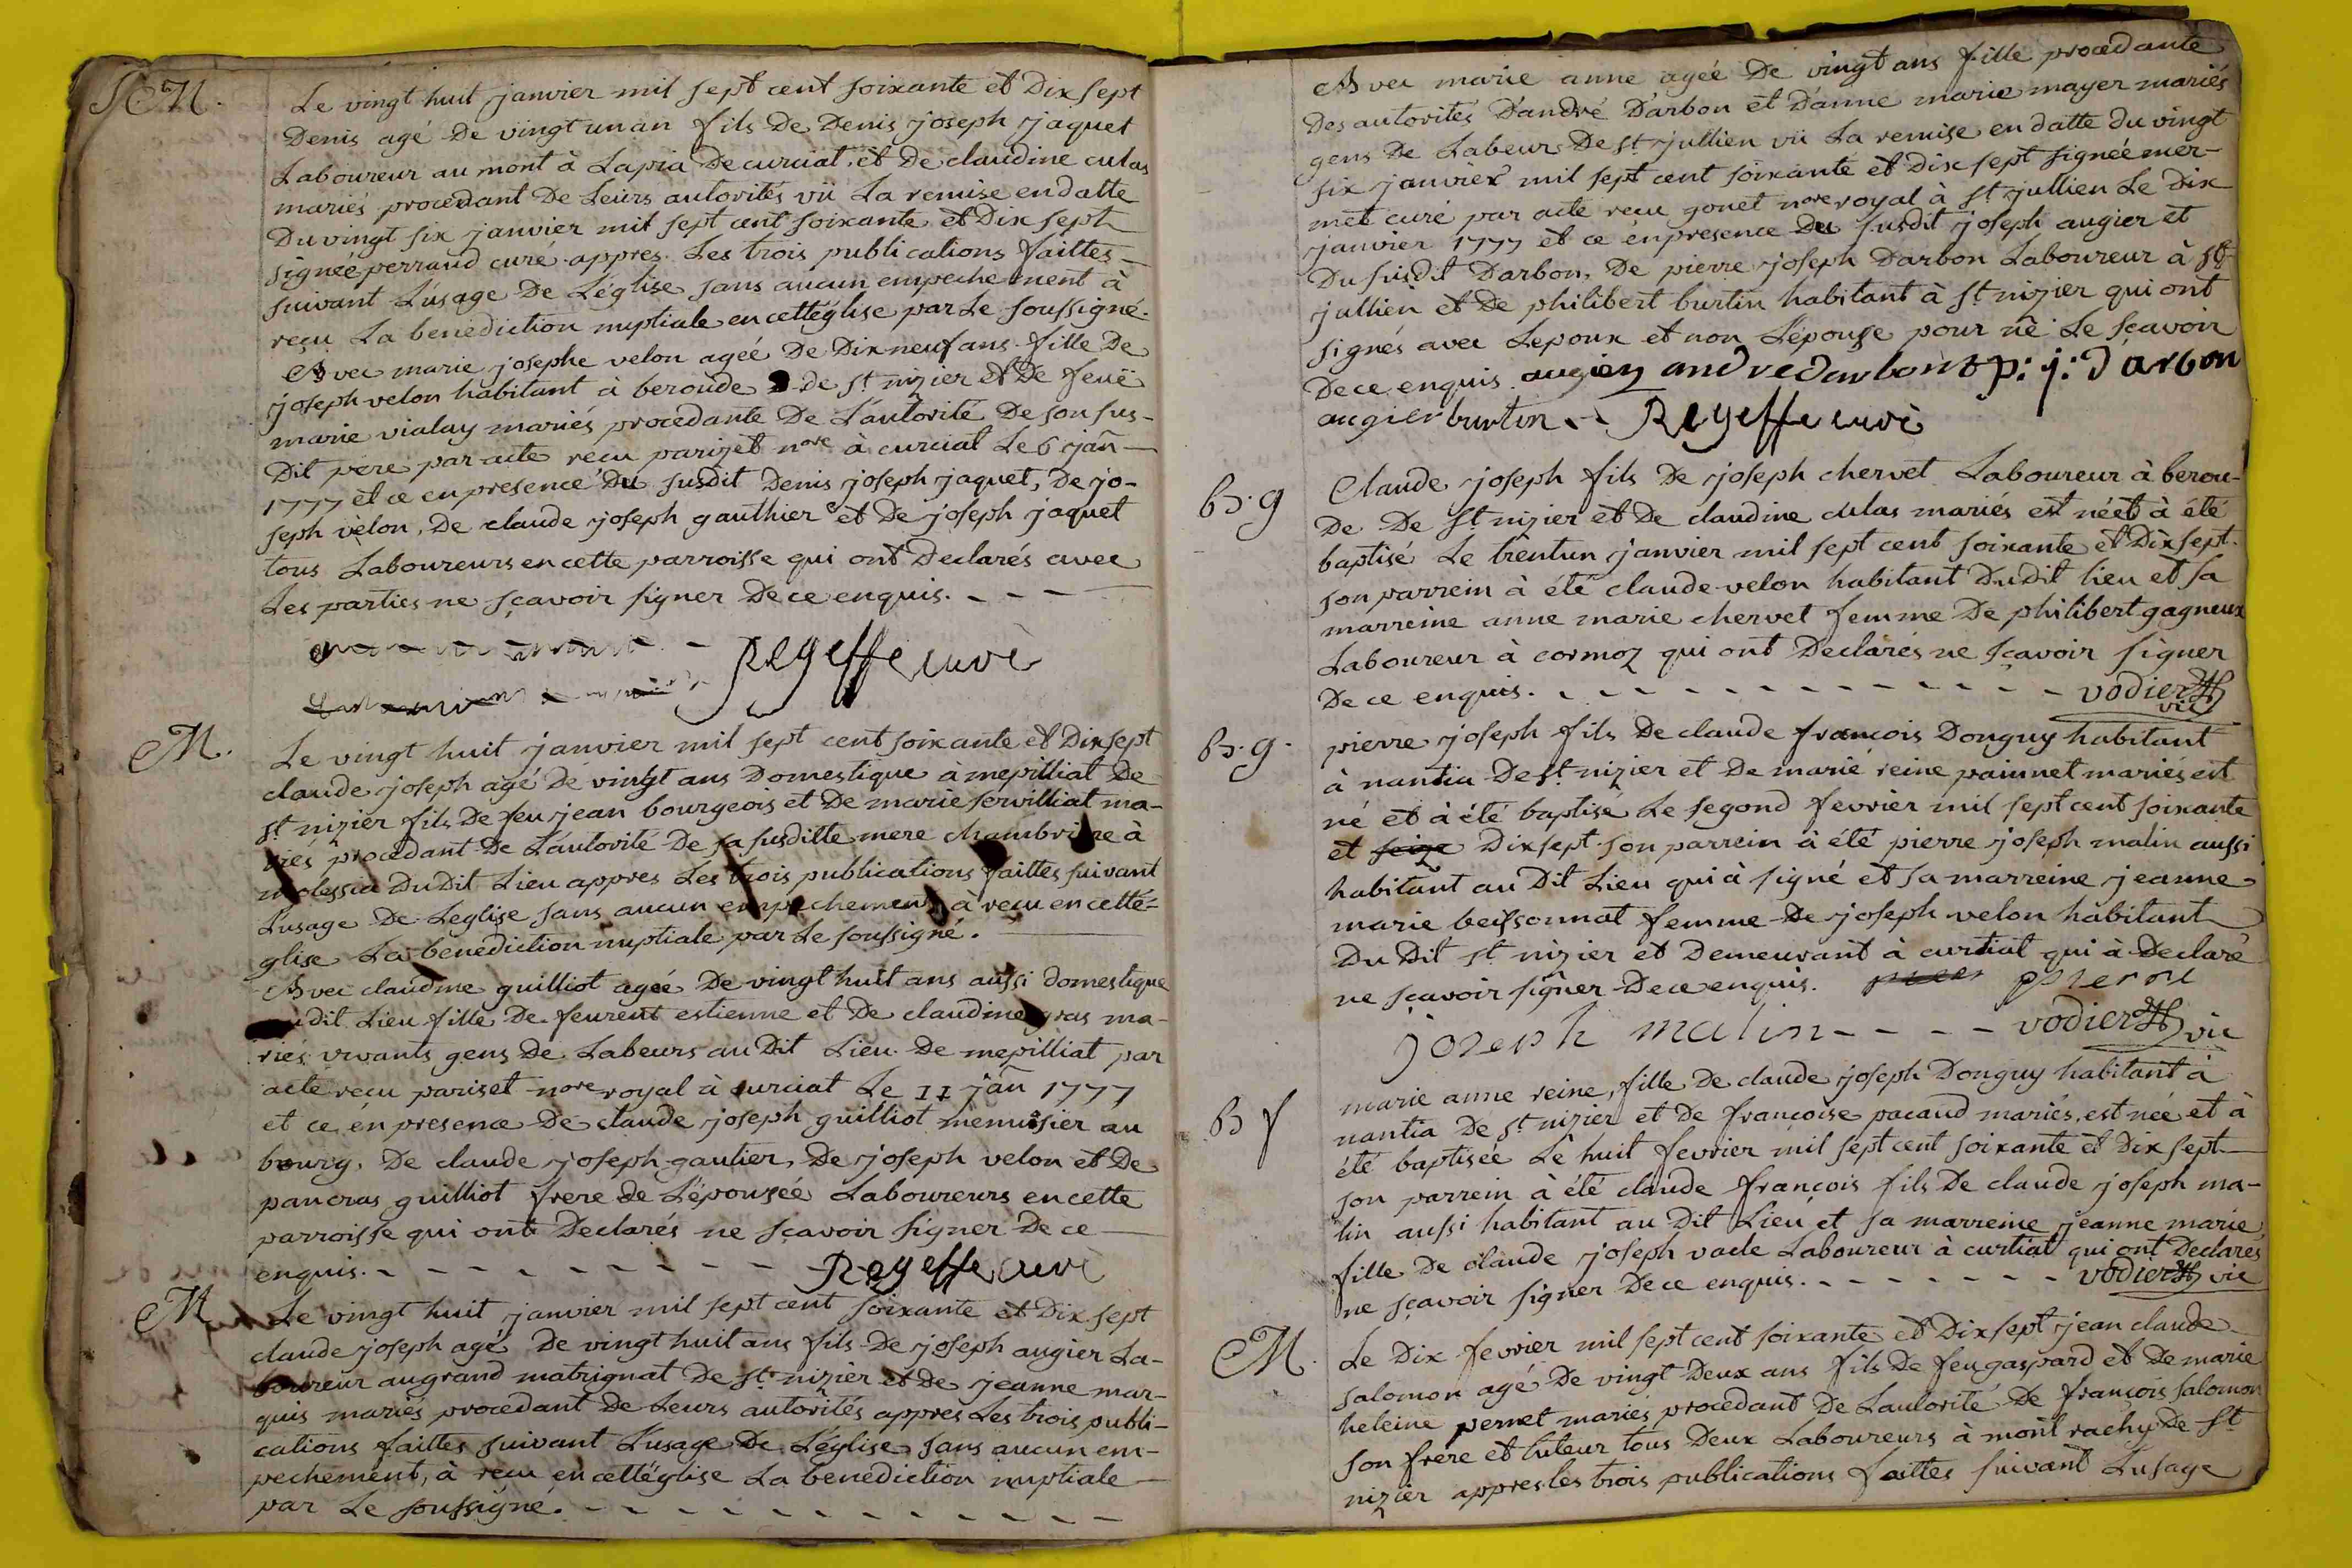 M.
Le vingt huit janvier mil sept cent soixante et Dix sept
Denis agé De vingt un an fils De Denis joseph jaquet
Laboureur au mont à Lapia De curciat, et De claudine culas
mariés procedant De Leurs autorités vü La remise en datte
Du vingt six janvier mil sept cent soixante et Dix sept
signée perraud curé appres Les trois publications faittes
suivant L'usage De L'église sans aucun empechement à
reçu La benediction nuptiale en cettéglise par Le soussigné.
Avec marie josephe velon agéé De Dix neuf ans fille De
joseph velon habitant à beroude de st nizier et De feuë
marie vialay mariés procedante De L'autorité De son sus-
Dit pere par acte reçu parizet nore à curciat Le 6 jañ
1777 et ce en presence Du susdit Denis joseph jaquet, De jo-
seph velon, De claude joseph gauthier et De joseph jaquet
tous Laboureurs en cette parroisse qui ont Declarés avec
Les parties ne sçavoir signer De ce enquis.
Regeffe curé
M.
Le vingt huit janvier mil sept cent soixante et Dix sept
claude joseph agé de vingt ans Domestique à mepilliat De
st nizier fils De feu jean bourgeois et De marie servilliat ma-
riés procedant De L'autorité De sa susditte mere chambriere à
molessia DuDit Lieu appres Les trois publications faittes suivant
L'usage De Leglise sans aucun empechement à reçu en cetté-
glise La benediction nuptiale par Le soussigné.
Avec claudine guilliot agéé De vingt huit ans aussi domestique
audit Lieu fille De feurent estienne et De claudine gras ma-
riés vivants gens De Labeurs au Dit Lieu De mepilliat par
acte reçu pariset nore royal à curciat Le 11 jañ 1777
et ce en presence De claude joseph guilliot menuisier au
bourg, De claude joseph gautier, De joseph velon et De
pancras guilliot frere de L'épousée Laboureurs en cette
parroisse qui ont Declarés ne sçavoir signer De ce
enquis. Regeffe curé
M
Le vingt huit janvier mil sept cent soixante et Dix sept
claude joseph agé De vingt huit ans fils De joseph augier La-
boureur au grand matrignat De st nizier et de jeanne mar-
quis mariés procedant De Leurs autorités appres Les trois publi-
cations faittes suivant L'usage De L'église sans aucun em-
pechement, à reçu en cettéglise La benediction nuptiale
par Le soussigné.
Avec marie anne agéé De vingt ans fille procedante
Des autorités D'andré D'arbon et D'anne marie mayer mariés
gens De Labeurs De st jullien vü La remise en datte Du vingt
six janvier mil sept cent soixante et Dix sept signée mer-
met curé par acte reçu gonet nore royal à st jullien Le Dix
janvier 1777 et ce en presence Du susdit joseph augier et
Du susdit Darbon, De pierre joseph Darbon Laboureur à st
jullien et De philibert burtin habitant à st nizier qui ont
signés avec Lepoux et non L'épouse pour ne Le sçavoir
De ce enquis. augier andre darbon p: j: Darbon
augier burtin Regeffe curé
B. g
Claude joseph fils De joseph chervet Laboureur à berou-
De De st nizier et De claudine culas mariés est né et à été
baptisé Le trentun janvier mil sept cent soixante et Dix sept.
son parrein à été claude velon habitant Dudit lieu et sa
marreine anne marie chervet femme De philibert gagneux
Laboureur à cormoz qui ont Declarés ne sçavoir signer
De ce enquis. vodier vic
B. g.
pierre joseph fils De claude françois Donguy habitant
à nantia De st nizier et De marie reine painnet mariés est
né et à été baptisé Le segond fevrier mil sept cent soixante
et seize Dix sept. son parrein à été pierre joseph malin aussi
habitant au Dit Lieu qui à signé et sa marreine jeanne
marie beissonnat femme De joseph velon habitant
Du Dit st nizier et Demeurant à curtiat qui à Declaré
ne sçavoir signer De ce enquis. pierre
joseph malin vodier vic
B f
marie anne reine, fille De claude joseph Donguy habitant à
nantia De st nizier et De françoise pacaud mariés, est née et à
été baptisée Le huit fevrier mil sept cent soixante et Dix sept
son parrein à été claude françois fils De claude joseph ma-
lin aussi habitant au Dit Lieu et sa marreine jeanne marie
fille De claude joseph vacle Laboureur à curtiat qui ont Declarés
ne sçavoir signer De ce enquis. vodier vic
M.
Le Dix fevrier mil sept cent soixante et Dix sept jean claude
salomon agé De vingt Deux ans fils De feu gaspard et De marie
heleine pernet mariés procedant De L'autorité De françois salomon
son frere et tuteur tous Deux Laboureurs à mont rachy De st
nizier appres les trois publications faittes suivant L'usage